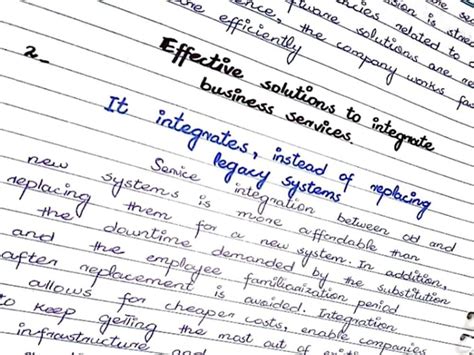 sion is stre
cies related to
ence, the software solutions are
are efficiently the company works for
2.
Effective solutions to integrate
business services.
It integrates, instead of replacing
legacy systems
Service integration between old and
new systems is more affordable than
replacing them for a new system. In addition,
the downtime demanded by the substitution
and the employee familiarization period
after replacement is avoided. Integration
allows for cheaper costs, enable companies
to keep getting the most out of
infrastructure and